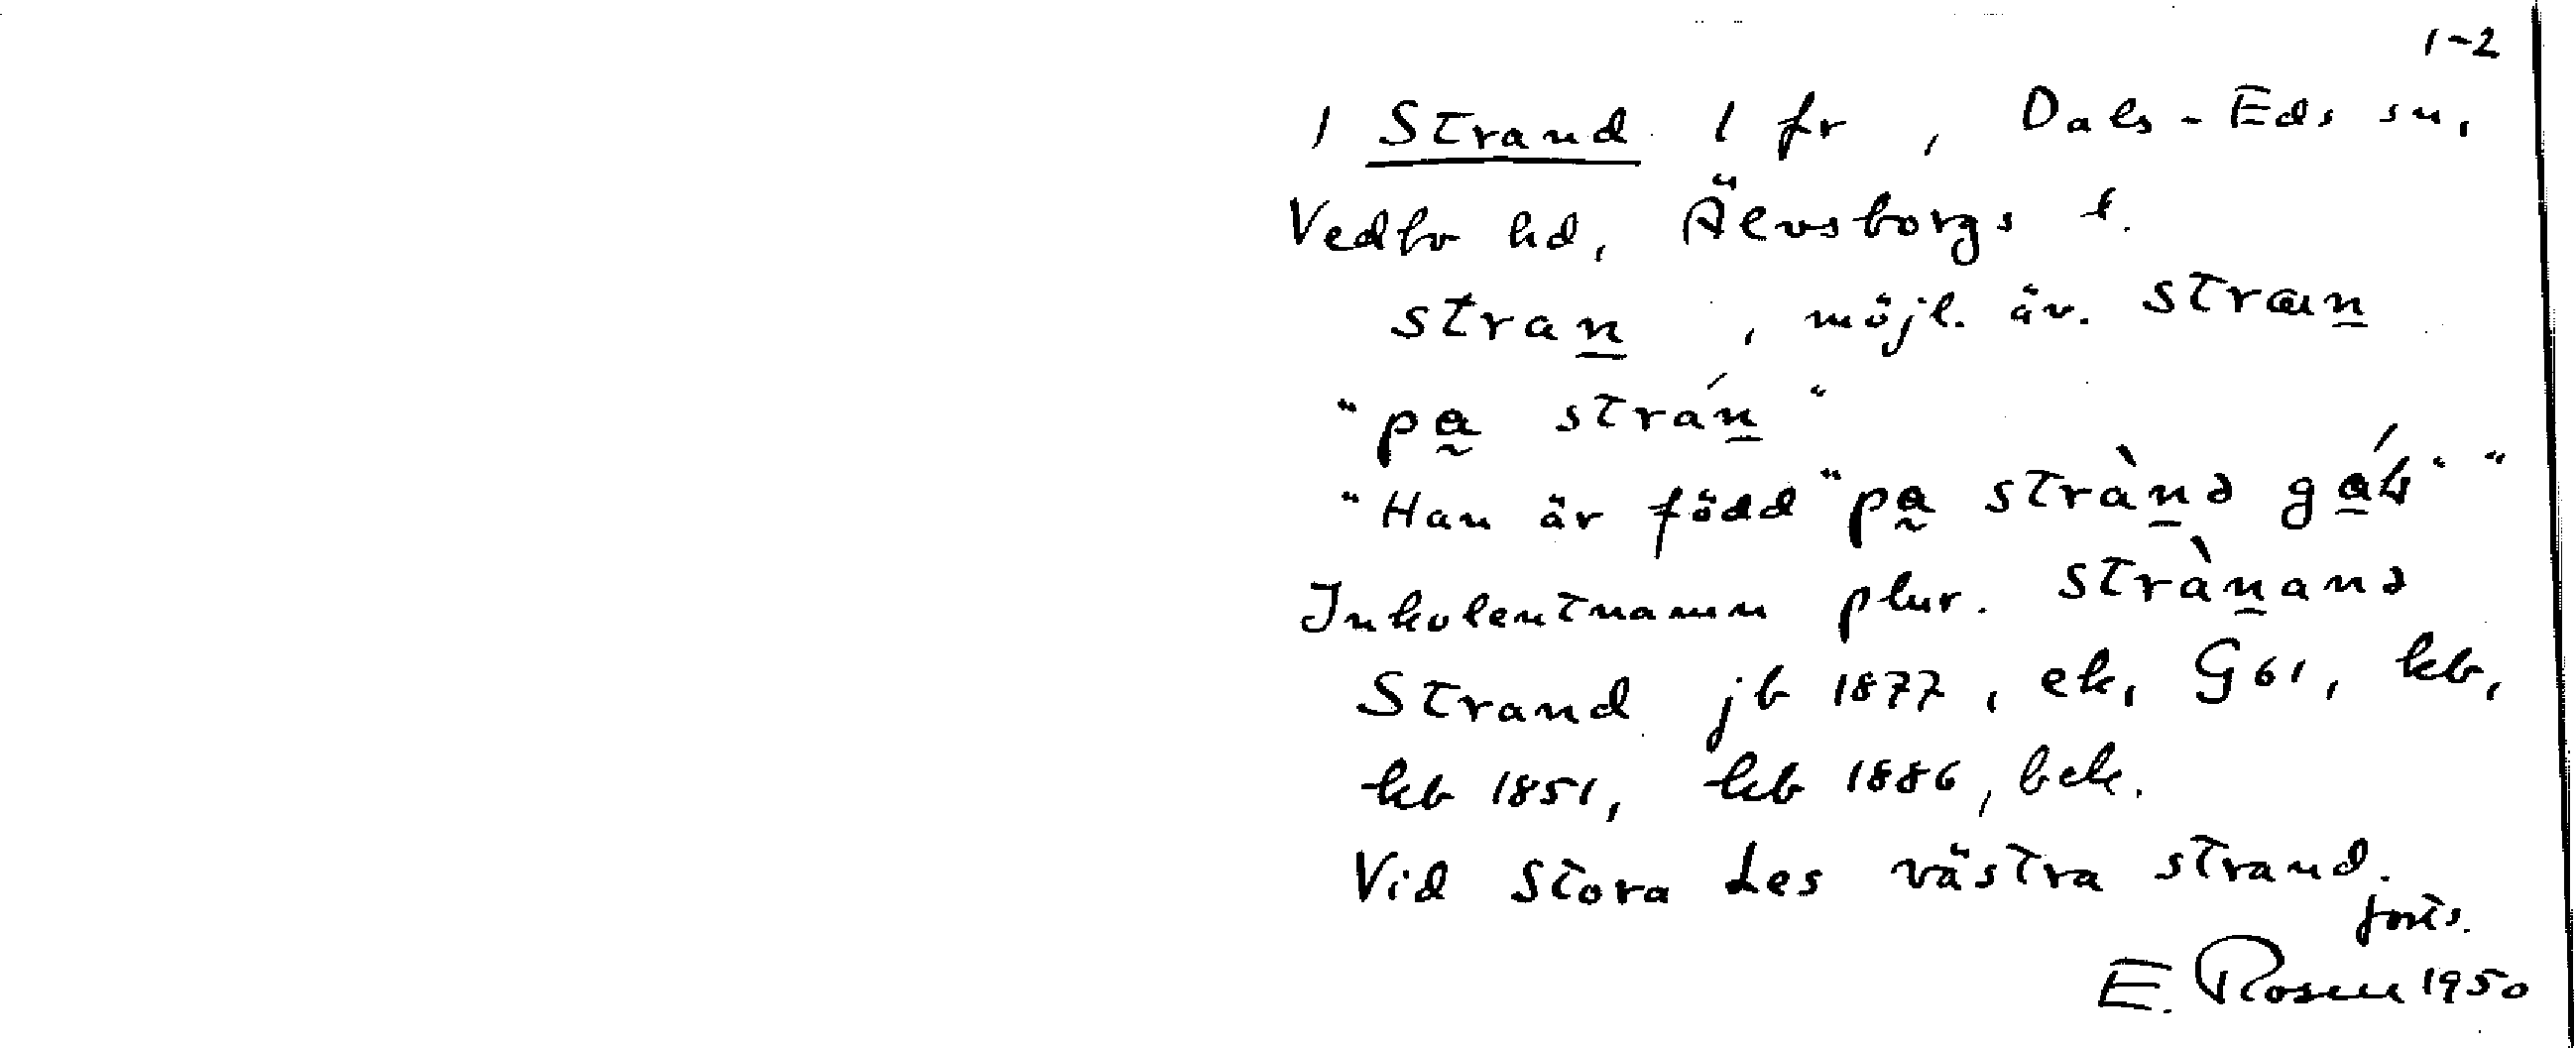 1-2
1 Strand 1 fr , Dals-Eds sn,
Vedbo hd, Älvsborgs l.
stran̲ , möjl. äv. stræn̲
"pa̰ strán̲"
"Han är född "pa̰ stràn̲ə ga̲ḷ" "
Inkolentnamn plur. stràn̲anə
Strand jb 1877, ek, G61, kb,
kb 1851, kb 1886, bek.
Vid Stora Les västra strand.
forts.
E. Rosen 1950